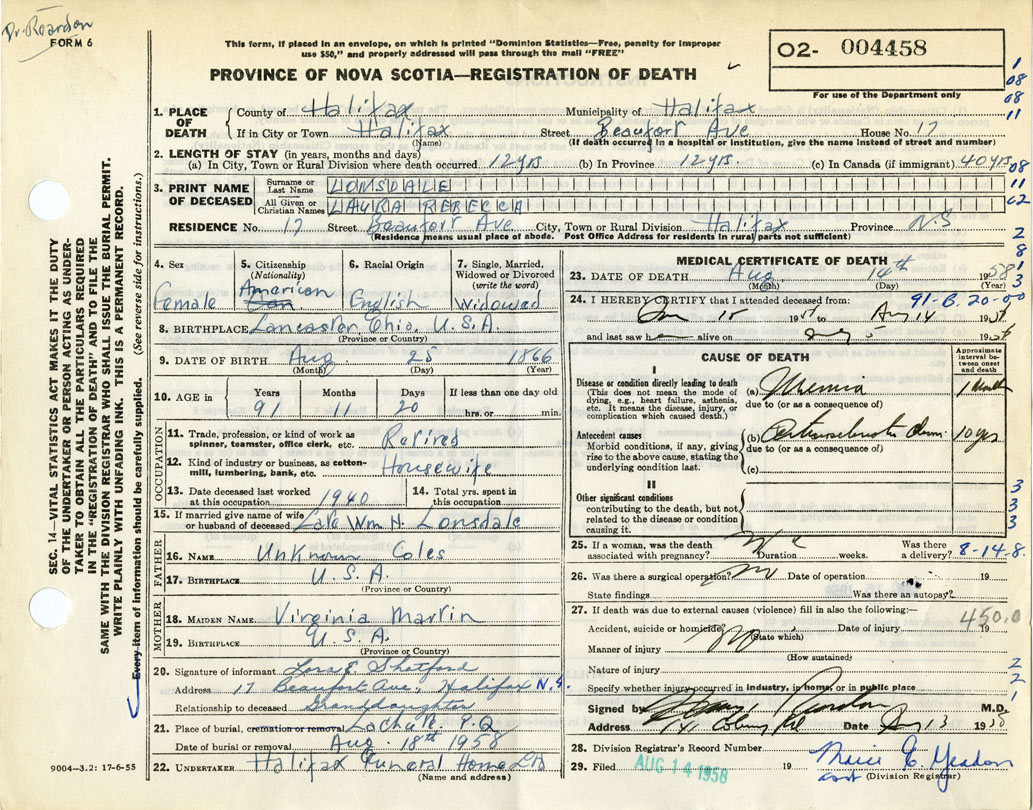 Dr. Reardon
FORM 6
This form, if placed in an envelope, on which is printed "Dominion Statistics—Free, penalty for improper
use $50," and properly addressed will pass through the mail "FREE"
PROVINCE OF NOVA SCOTIA—REGISTRATION OF DEATH
O2- 004458
For use of the Department only
1. PLACE OF DEATH County of Halifax Municipality of Halifax
If in City or Town Halifax Street Beaufort Ave House No. 17
(Name) (If death occurred in a hospital or institution, give the name instead of street and number)
2. LENGTH OF STAY (in years, months and days)
(a) In City, Town or Rural Division where death occurred 12 yrs (b) In Province 12 yrs (c) In Canada (if immigrant) 40 yrs
3. PRINT NAME OF DECEASED Surname or Last Name LONSDALE
All Given or Christian Names LAURA REBECCA
RESIDENCE No. 17 Street Beaufort Ave City, Town or Rural Division Halifax Province N.S.
(Residence means usual place of abode. Post Office Address for residents in rural parts not sufficient)
4. Sex Female
5. Citizenship (Nationality) American Can.
6. Racial Origin English
7. Single, Married, Widowed or Divorced (write the word) Widowed
8. BIRTHPLACE Lancaster, Ohio, U.S.A.
(Province or Country)
9. DATE OF BIRTH Aug 25 1866
(Month) (Day) (Year)
10. AGE in Years 91 Months 11 Days 20 If less than one day old hrs. or min.
OCCUPATION
11. Trade, profession, or kind of work as spinner, teamster, office clerk, etc. Retired
12. Kind of industry or business, as cotton-mill, lumbering, bank, etc. Housewife
13. Date deceased last worked at this occupation 1940
14. Total yrs. spent in this occupation
15. If married give name of wife or husband of deceased Late Wm H. Lonsdale
FATHER
16. NAME Unknown Coles
17. BIRTHPLACE U.S.A.
(Province or Country)
MOTHER
18. MAIDEN NAME Virginia Martin
19. BIRTHPLACE U.S.A.
(Province or Country)
20. Signature of informant Lora E. Shatford
Address 17 Beaufort Ave, Halifax N.S.
Relationship to deceased Granddaughter
21. Place of burial, cremation or removal Lachute P.Q
Date of burial or removal Aug. 18th 1958
22. UNDERTAKER Halifax Funeral Home Ltd
(Name and address)
9004—3.2: 17-6-55
MEDICAL CERTIFICATE OF DEATH
23. DATE OF DEATH Aug 14th 1958
(Month) (Day) (Year)
24. I HEREBY CERTIFY that I attended deceased from: 91-B. 20-00
Aug 14
and last saw h alive on 19
CAUSE OF DEATH
Approximate interval between onset and death
I
Disease or condition directly leading to death
(This does not mean the mode of dying, e.g., heart failure, asthenia, etc. It means the disease, injury, or complication which caused death.)
(a) Uremia 1 Month
due to (or as a consequence of)
Antecedent causes
Morbid conditions, if any, giving rise to the above cause, stating the underlying condition last.
(b) 10 yrs
due to (or as a consequence of)
(c)
II
Other significant conditions
contributing to the death, but not related to the disease or condition causing it.
25. If a woman, was the death associated with pregnancy? Duration weeks. Was there a delivery? 8-14-8.
26. Was there a surgical operation? no Date of operation 19
State findings Was there an autopsy?
27. If death was due to external causes (violence) fill in also the following:—
450.0
Accident, suicide or homicide? no (State which) Date of injury 19
Manner of injury
(How sustained)
Nature of injury
Specify whether injury occurred in industry, in home, or in public place
Signed by Reardon M.D.
Address Date 13 1958
28. Division Registrar's Record Number
29. Filed AUG 14 1958 19
(Division Registrar)
SEC. 14—VITAL STATISTICS ACT MAKES IT THE DUTY
OF THE UNDERTAKER OR PERSON ACTING AS UNDER-
TAKER TO OBTAIN ALL THE PARTICULARS REQUIRED
IN THE "REGISTRATION OF DEATH" AND TO FILE THE
SAME WITH THE DIVISION REGISTRAR WHO SHALL ISSUE THE BURIAL PERMIT.
WRITE PLAINLY WITH UNFADING INK. THIS IS A PERMANENT RECORD.
Every item of information should be carefully supplied. (See reverse side for instructions.)
1
08
08
11
08
11
02
2
8
1
3
3
3
3
2
2
1